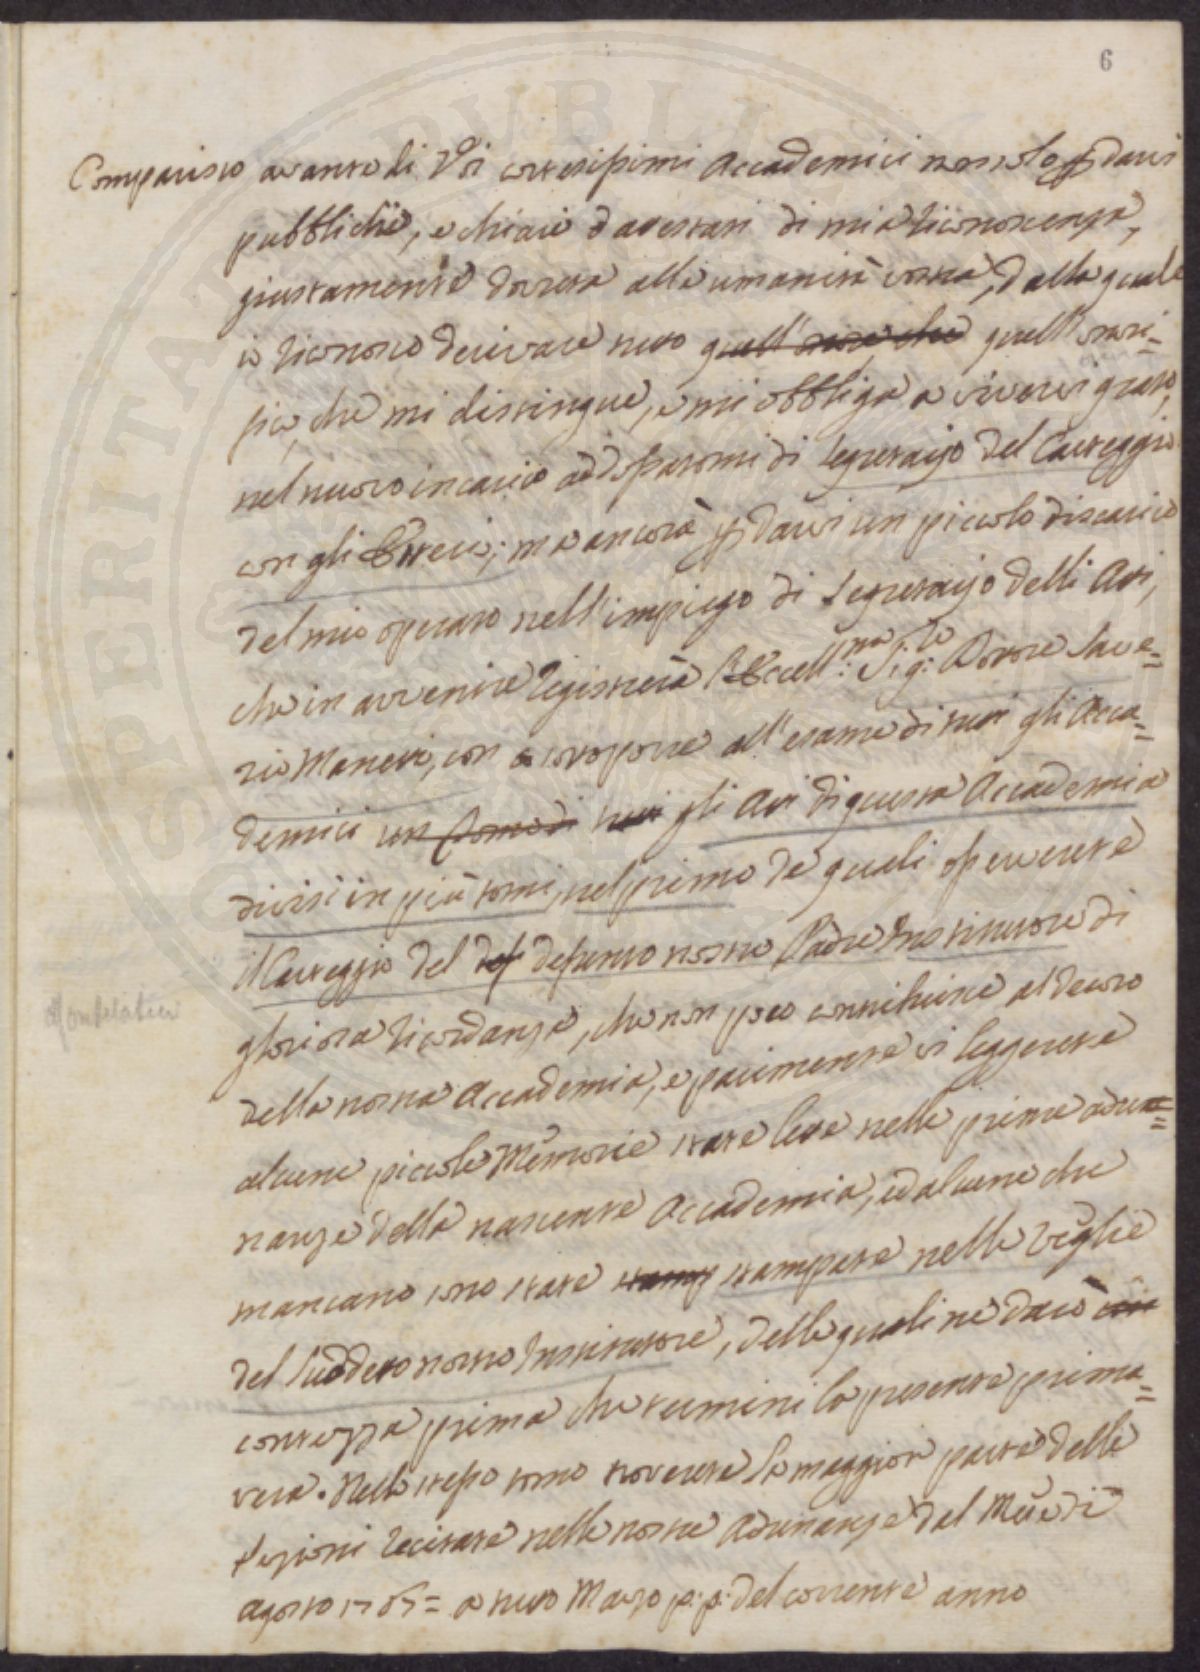 6
Comparisco avanti di Voi cortesissimi Accademici non solo p darvi
pubbliche, e chiare d'attestati di mia riconoscenza,
giustamente dovuta alla umanità vostra, dalla quale
io riconosco derivare tutto quell'onore che quell'onori=
fico, che mi distingue, e mi obbliga a vivervi grato,
nel nuovo incarico addossatomi di Segretario del Carteggio
con gli Esteri; ma ancora p darvi un piccolo discarico
del mio operato nell'impiego di Segretario delli Atti,
che in avvenire registrerà l'Eccell:mo Sig:re Dottore Save=
rio Manetti, con sottoporre all'esame di tutti gli Acca=
demici un tutti gli Atti di questa Accademia
divisi in più tomi, nel primo de quali troverete
il Carteggio del def defunto nostro Padre Institutore di
gloriosa ricordanza, che non poco contribuirà al decoro
della nostra Accademia, e parimente vi leggerete
alcune piccole Memorie state lette nelle prime adu=
nanze della nascente Accademia, ed alcune che
mancano sono state stamp stampate nelle Veglie
del Suddetto nostro Institutore, delle quali ne darò
contezza prima che termini la presente prima=
vera. Nello stesso tomo troverete la maggior parte delle
Lezioni recitate nelle nostre Adunanze dal Mese di
Agosto 1765= a tutto Marzo p:p: del corrente anno
Montelatici